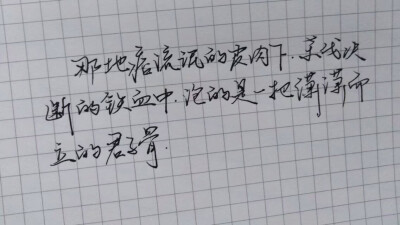 那地痞流氓的皮肉下.杀伐决
断的铁血中.泡的是一把潇潇而
立的君子骨.